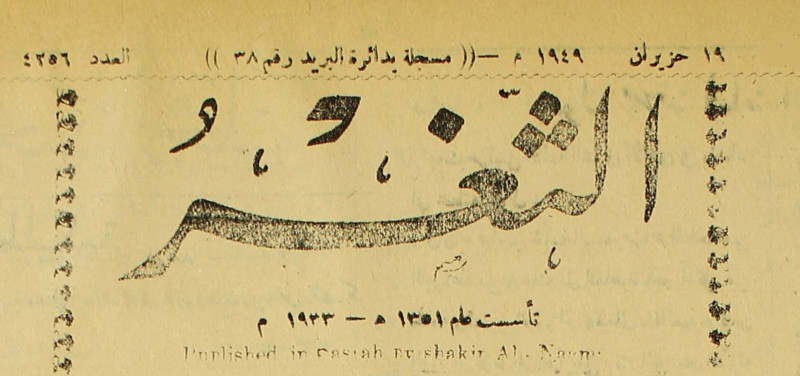 ١٩ حزيران ١٩٤٩ م —(( مسجلة بدائرة البريد رقم ٣٨ )) العدد ٤٢٥٦
الثغر
تأسست عام ١٣٥١ ه — ١٩٣٣ م
Published in Basrah by shakir Al-